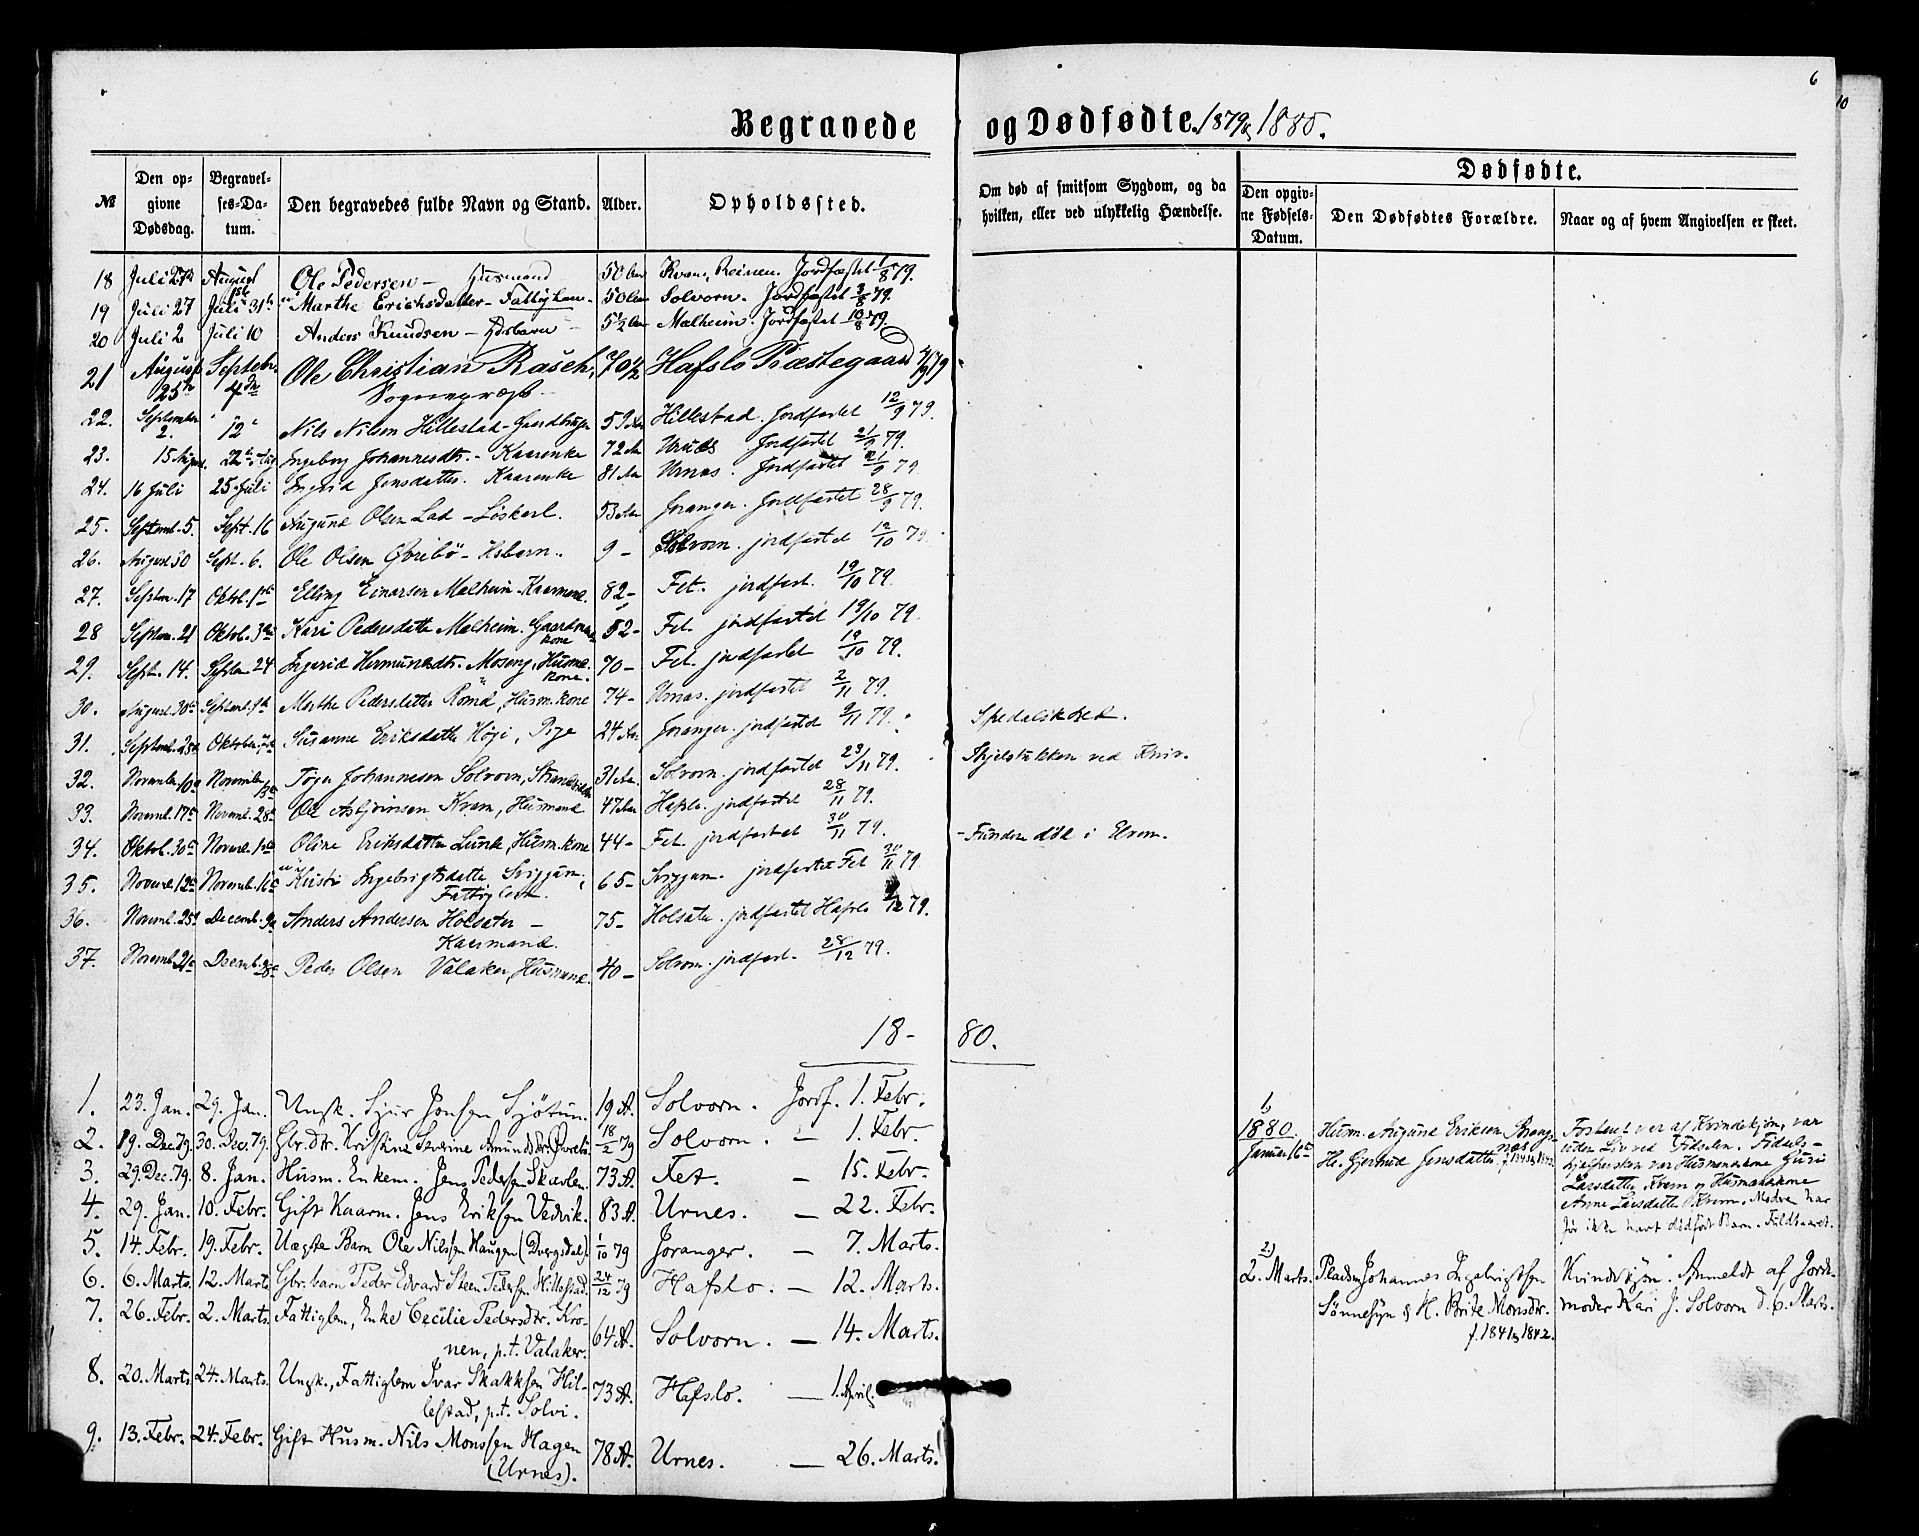 6
10
Begravede og Dødfødte. 1879 & 1880.
№
Den opgivne Dødsdag.
Begravelses-Datum.
Den begravedes fulde Navn og Stand.
Alder.
Opholdssted.
Om død af smitsom Sygdom, og da hvilken, eller ved ulykkelig Hændelse.
Dødfødte.
Den opgivne Fødsels-Datum.
Den Dødfødtes Forældre.
Naar og af hvem Angivelsen er skeet.
18 Juli 27 August 1st Ole Pedersen – Husmand 50 Aar Kvam, Reinen. Jordfæstet 1/8 79.
19 Juli 27 Juli 31 Marthe Erichsdatter – Fattiglem – 50 Aar Solvorn. Jordfæstet 3/8 79.
20 Juli 2 Juli 10 Anders Knudsen – 5½ Aar Malheim. Jordfæstet 10/8 79.
21 August 25 Septebr. 4de Ole Christian Rasch, 70½ Hafslo Præstegaard 4/9 79
Sognepræst
22. September 2. 12 Nils Nilsen Hillestad – Gaardbruger 59 Aar Hillestad. Jordfæstet 12/9 79.
23. 15 August 22 Aug Ingeborg Johannesdtr. – Kaarenke 72 Aar Urnæs Jordfæstet 21/9 79.
24. 16 Juli 25 Juli Ingrid Jensdatter. Kaarenke 81 Aar Urnæs. Jordfæstet 21/9 79
25. Septemb. 5. Sept. 16 Augund Olsen Lad – Löskarl. 53 Aar Joranger. Jordfæstet 28/9 79.
26. August 30 Sept. 6. Ole Olsen – Hsbarn. 9 – Solvorn. jordfæstet 12/10 79.
27. Septm. 17 Oktob. 1ste Elling Einarsen Malheim – Kaarmand. 82 – Fet. jordfæst. 19/10 79.
28 Septem. 21 Oktob. 3die Kari Pedersdatter Malheim. Gaardmands 52 – Fet. jordfæstet 19/10 79.
kone
29. Sept. 14. Septem 24 Ingerid Hermundsdtr. Moseng, Husm. 70 – Fet. jordfæstet 19/10 79.
kone.
30. August 30te Septemb. 9de Marthe Pedersdatter Römd, Husm. kone 74 – Urnæs. jordfæstet 2/11 79.
31. Septemb. 25 Oktober Susanne Eriksdatter Högi, Pige 24 Aar Joranger. jordfæstet 9/11 79. Spedalskhed.
32. November 10 November Johannesen Solvorn, Strandsidder 31 Aar Solvorn. jordfæstet 23/11 79. Ihjelstukken ved Kniv.
33. Novemb. 17 Novemb. 28 Ole Asbjörnsen Kvam, Husmand 47 Aar Hafslo. jordfæstet 28/11 79.
34. Oktob. 30te Novemb. 1ste Oline Eriksdatter Lund, Husm. kone 44 – Fet. jordfæstet 30/11 79. – Funden död i Urem.
35. Novemb. 12 Novemb. 16 Kristi Ingebrigtsdatter Sviggum, 65 – Sviggum. jordfæstet Fet 30/11 79
Fattiglem.
36. Novemb. 25 Decemb. 9 Anders Andersen Holsæter – 75 – Holsæter. jordfæstet Hafslo /12 79.
Kaarmand.
37. Novemb. 21 Decemb. Peder Olsen Valaker, Husmand. 40 – Solvorn. jordfæst. 28/12 79.
18 – 80.
1. 23. Jan. 29. Jan. Ungk. Sjur Jonsen Sjötun. 19 A. Solvorn. Jordf. 1. Febr.
2. 19. Dec 79. 30. Dec. 79. Gbr. dtr. Kristine Severine Amundsdtr. 18/2 79 Solvorn. – 1. Febr.
3. 29. Dec. 79. 8. Jan. Husm. Enkem. Jens Pedersen Skavlen. 73 A. Fet. – 15. Febr.
4. 29. Jan. 10. Febr. Gift Kaarm. Jens Eriksen Vedvik. 83 A. Urnes. – 22. Febr.
5. 14. Febr. 19. Febr. Uægte Barn Ole Nilssen Haugen (Dvergsdal). 1/10 79 Joranger. – 7. Marts.
6. 6. Marts. 12. Marts Gbr. barn Peder Edvard Steen Pedersen Hillestad. 24/12 79 Hafslo. – 12. Marts.
7. 26. Febr. 2. Marts. Fattiglem, Enke Cecilie Pedersdtr. Kro-
nen, p.t. Valaker. 64 A. Solvorn. – 14. Marts.
8. 20. Marts. 24. Marts. Ungk., Fattiglem Ivar Skakksen Hil-
lestad, p.t. Solvi. 73 A. Hafslo. – 1. April.
9. 13. Febr. 24. Febr. Gift Husm. Nils Monssen Hagen
(Urnes). 78 A. Urnes. – 26. Marts.
1)
1880.
Januar 16 Husm. Augund Eriksen
H. Gjertrud Jensdatter.
Fosteret var af Kvindekjön, var
uden Liv ved Födselen. Födsels-
hjælpersker var Husmandskone Guri
Larsdatter Kvam og Husmandskone
Anne Larsdatter Kvam. Modre har
för ikke havt dödfödt Barn. Fuldbaaret.
2)
2. Marts. Pladsm. Johannes Ingebrigtsen
Sönnesyn & H. Brite Monsdtr.
f. 1841 & 1842.
Kvindekjön. Anmeldt af Jorde-
moder Kari J. Solvorn d. 6. Marts.